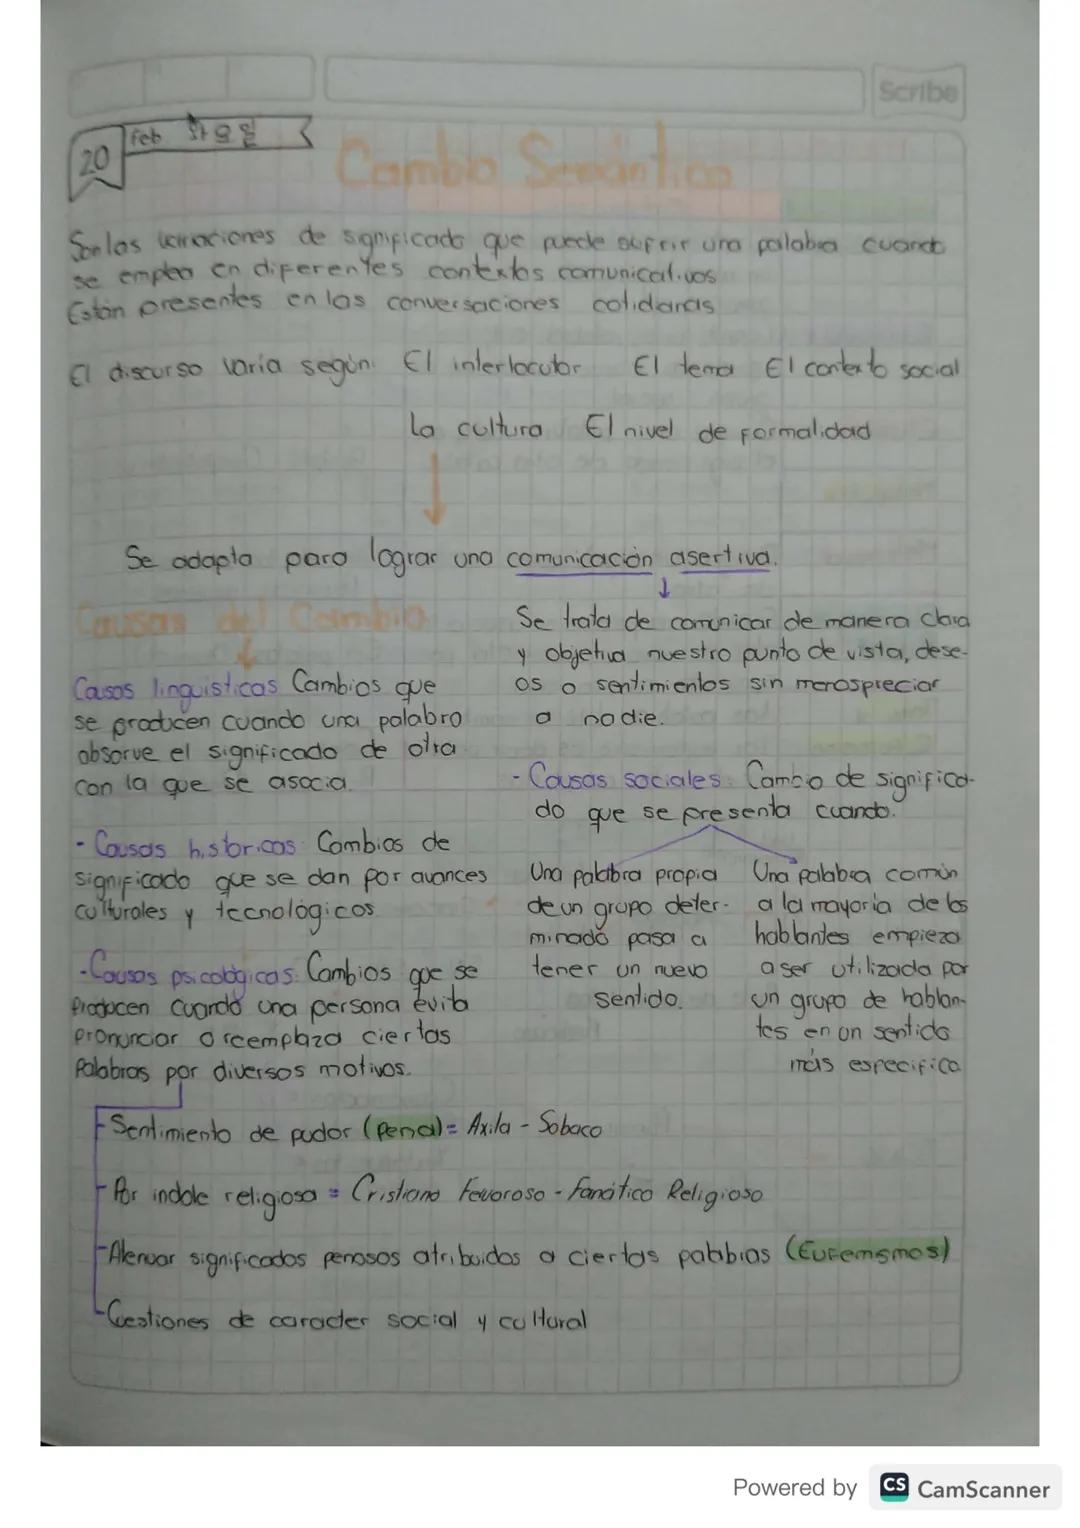 Scribe
20
feb 화요일
Cambio Semántico
Son las variaciones de significado que puede sufrir una palabra cuando
se emplea en diferentes contextos comunicativos
Están presentes en las conversaciones cotidianas
El discurso varía según: El interlocutor El tema El contexto social
La cultura El nivel de formalidad
Se adapta para lograr una comunicación asertiva.
Se trata de comunicar de manera clara
y objetiva nuestro punto de vista, dese-
os o sentimientos sin menospreciar
a nadie.
Causas del Cambio
Causas linguisticas Cambios que
se producen cuando una palabra
absorve el significado de otra
con la que se asocia.
- Causas historicas Cambios de
significado que se dan por avances
culturales y tecnológicos
- Causas psicológicas: Cambios que se
Producen cuando una persona evita
pronunciar o reemplaza ciertas
Palabras por diversos motivos.
- Causas sociales: Cambio de significa-
do que se presenta cuando.
Una palabra propia
de un grupo deter-
minado pasa a
tener un nuevo
sentido.
Una palabra común
a la mayoría de los
hablantes empieza
a ser utilizada por
un grupo de hablan-
tes en un sentido
más especifico
- Sentimiento de pudor (pena) = Axila - Sobaco
- Por indole religiosa = Cristiano Fevoroso - Fanático Religioso
- Atenuar significados penosos atribuidos a ciertas palabras (Eufemismos)
- Cuestiones de caracter social y cultural
Powered by CS CamScanner